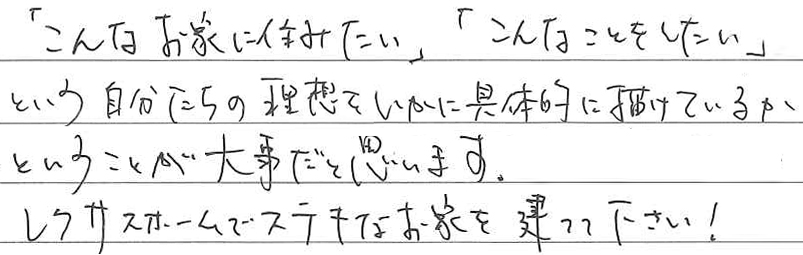 「こんなお家に住みたい」「こんなことをしたい」
という自分たちの理想をいかに具体的に描けているか
ということが大事だと思います。
レクサスホームでステキなお家を建てて下さい!